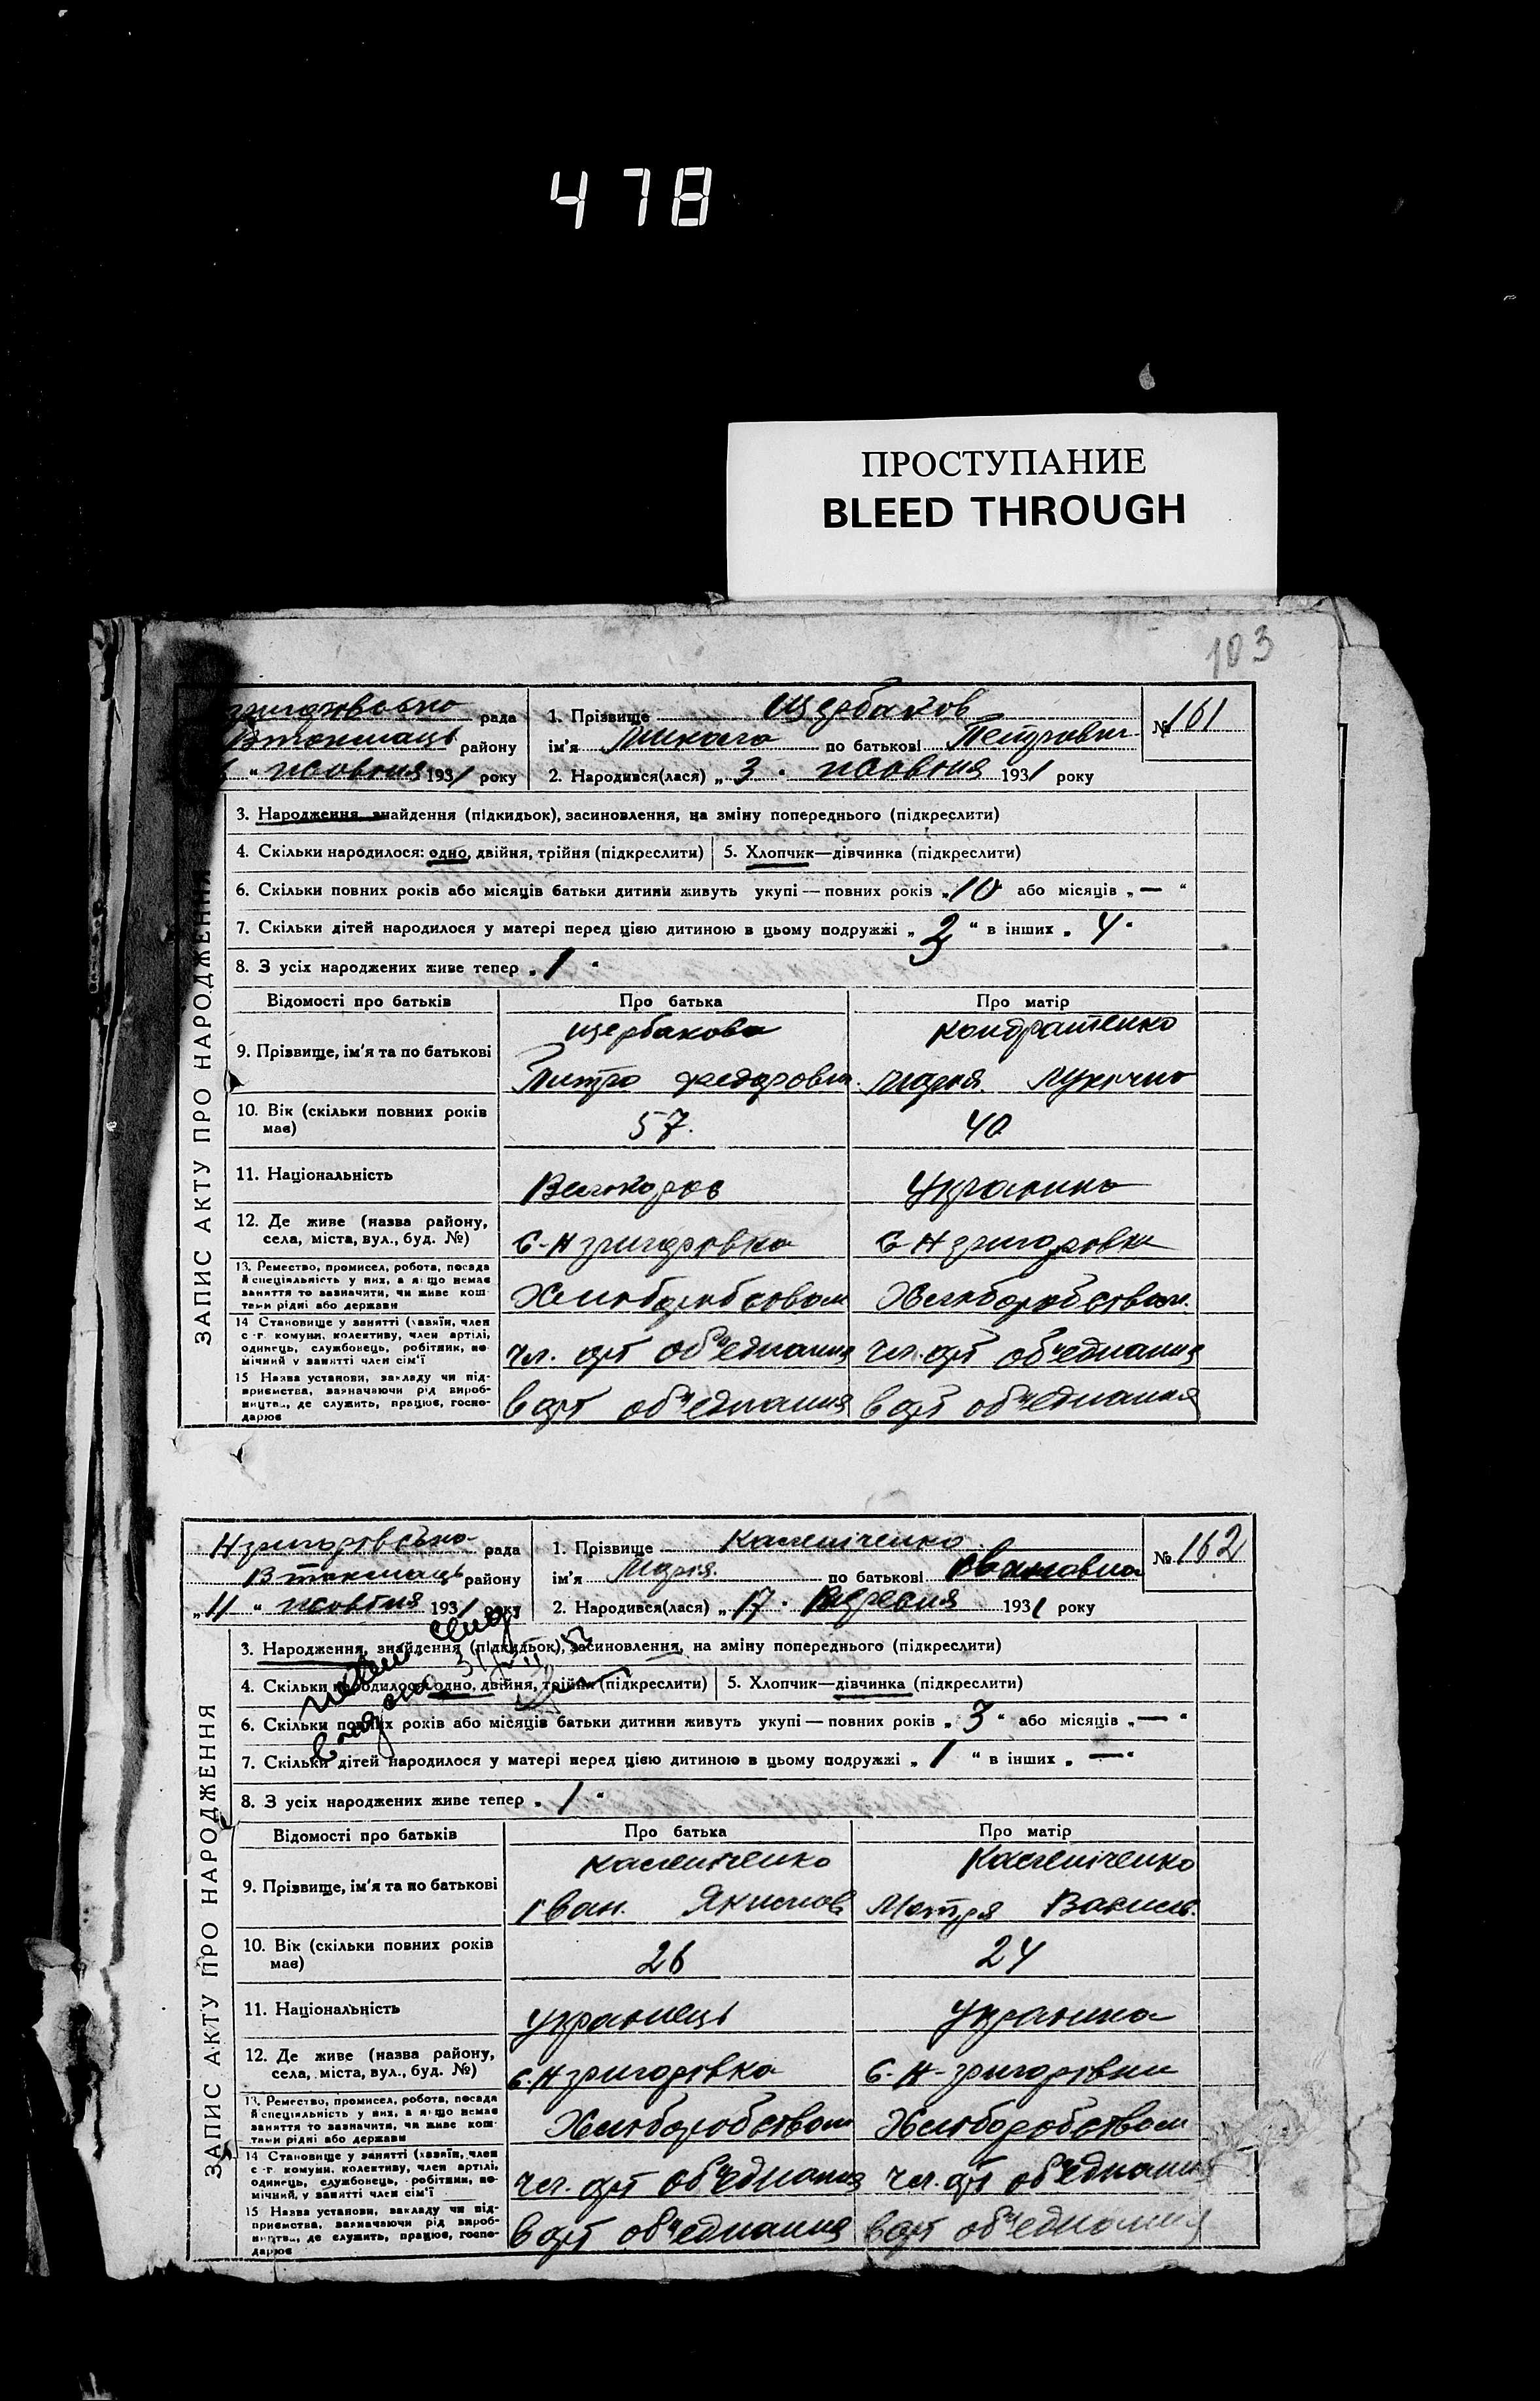 478
ПРОСТУПАНИЕ
BLEED THROUGH
103
рада
Втокмаць району
" жовтня 1931 року
1. Прізвище Щербаков
ім'я Микола по батькові Петрович
2. Народився(лася) „ 3 " жовтня 1931 року
№ 161
ЗАПИС АКТУ ПРО НАРОДЖЕННЯ
3. Народження, знайдення (підкидьок), засиновлення, на зміну попереднього (підкреслити)
4. Скільки народилося: одно, двійня, трійня (підкреслити) 5. Хлопчик—дівчинка (підкреслити)
6. Скільки повних років або місяців батьки дитини живуть укупі — повних років „ 10 або місяців „ — "
7. Скільки дітей народилося у матері перед цією дитиною в цьому подружжі „ " в інших „ 4 "
8. З усіх народжених живе тепер „ 1 "
Відомості про батьків Про батька Про матір
9. Прізвище, ім'я та по батькові
Щербакова Кондратенко
Петро Федорович Марія
10. Вік (скільки повних років має) 57. 40
11. Національність Великорос Україинка
12. Де живе (назва району, села, міста, вул., буд. №) с-Нзригоровка с Нзригоровка
13. Ремество, промисел, робота, посада й спеціяльність у них, а якщо немає заняття то зазначити, чи живе коштами рідні або держави Хлюборобством Хлюборобством.
14 Становище у занятті (хазяїн, член с.-г. комуни, колективу, член артілі, одинець, службовець, робітник, помічний у занятті член сім'ї чл. арт об'єднания чл. арт об'єднания
15 Назва установи, закладу чи підприємства, зазначаючи рід виробництва, де служить, працює, господарює в арт об'єднания в арт об'єднания
Нзригоровсько рада
Втокмаць району
„ 11 " жовтня 1931 року
1. Прізвище Касяніченко
ім'я Марія. по батькові Ивановна
2. Народився(лася) „ 17 " Вересня 1931 року
№ 162
ЗАПИС АКТУ ПРО НАРОДЖЕННЯ
3. Народження, знайдення (підкидьок), засиновлення, на зміну попереднього (підкреслити)
4. Скільки народилося: одно, двійня, трійня (підкреслити) 5. Хлопчик—дівчинка (підкреслити)
6. Скільки повних років або місяців батьки дитини живуть укупі — повних років „ 3 " або місяців „ — "
7. Скільки дітей народилося у матері перед цією дитиною в цьому подружжі „ 1 " в інших „ — "
8. З усіх народжених живе тепер „ 1 "
Відомості про батьків Про батька Про матір
9. Прізвище, ім'я та по батькові
Касяніченко Касяніченко
Іван. Якимов Мотря Васильо.
10. Вік (скільки повних років має) 26 24
11. Національність Українець Українка
12. Де живе (назва району, села, міста, вул., буд. №) с. Нзригорівка с. Н-зригорівки
13. Ремество, промисел, робота, посада й спеціяльність у них, а якщо немає заняття то зазначити, чи живе коштами рідні або держави Хлюборобством Хлюборобством
14 Становище у занятті (хазяїн, член с.-г. комуни, колективу, член артілі, одинець, службовець, робітник, помічний, у занятті член сім'ї чл. арт об'єднания чл. арт об'єднания
15 Назва установи, закладу чи підприємства, зазначаючи рід виробництва, де служить, працює, господарює в арт об'єднания в арт об'єднания